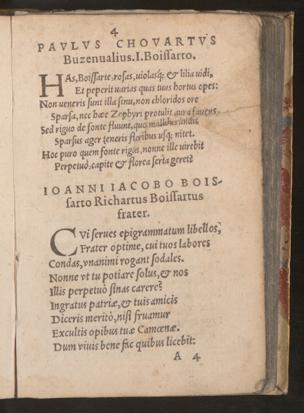 4
PAVLVS CHOVARTVS
Buzenualius.I.Boissarto.
HAs, Boissarte, rosas, violasq; & lilia uidi,
Et peperit uarias quas tuus hortus opes:
Non ueneris sunt illa sinu, non chloridos ore
Sparsa, nec hæc Zephyri protulit aura fauens.
Sed riguo de fonte fluunt, quo mollibus undis
Sparsus ager teneris floribus usq; nitet.
Hoc puro quem fonte rigas, nonne ille uirebit
Perpetuò, capite & florea serta geret?
IOANNI IACOBO BOIS-
sarto Richartus Boissartus
frater.
CVi serues epigrammatum libellos,
Frater optime, cui tuos labores
Condas, vnanimi rogant sodales.
Nonne vt tu potiare solus, & nos
Illis perpetuò sinas carere?
Ingratus patriæ, & tuis amicis
Diceris meritò, nisi fruamur
Excultis opibus tuæ Camœnæ.
Dum viuis bene fac quibus licebit:
A 4